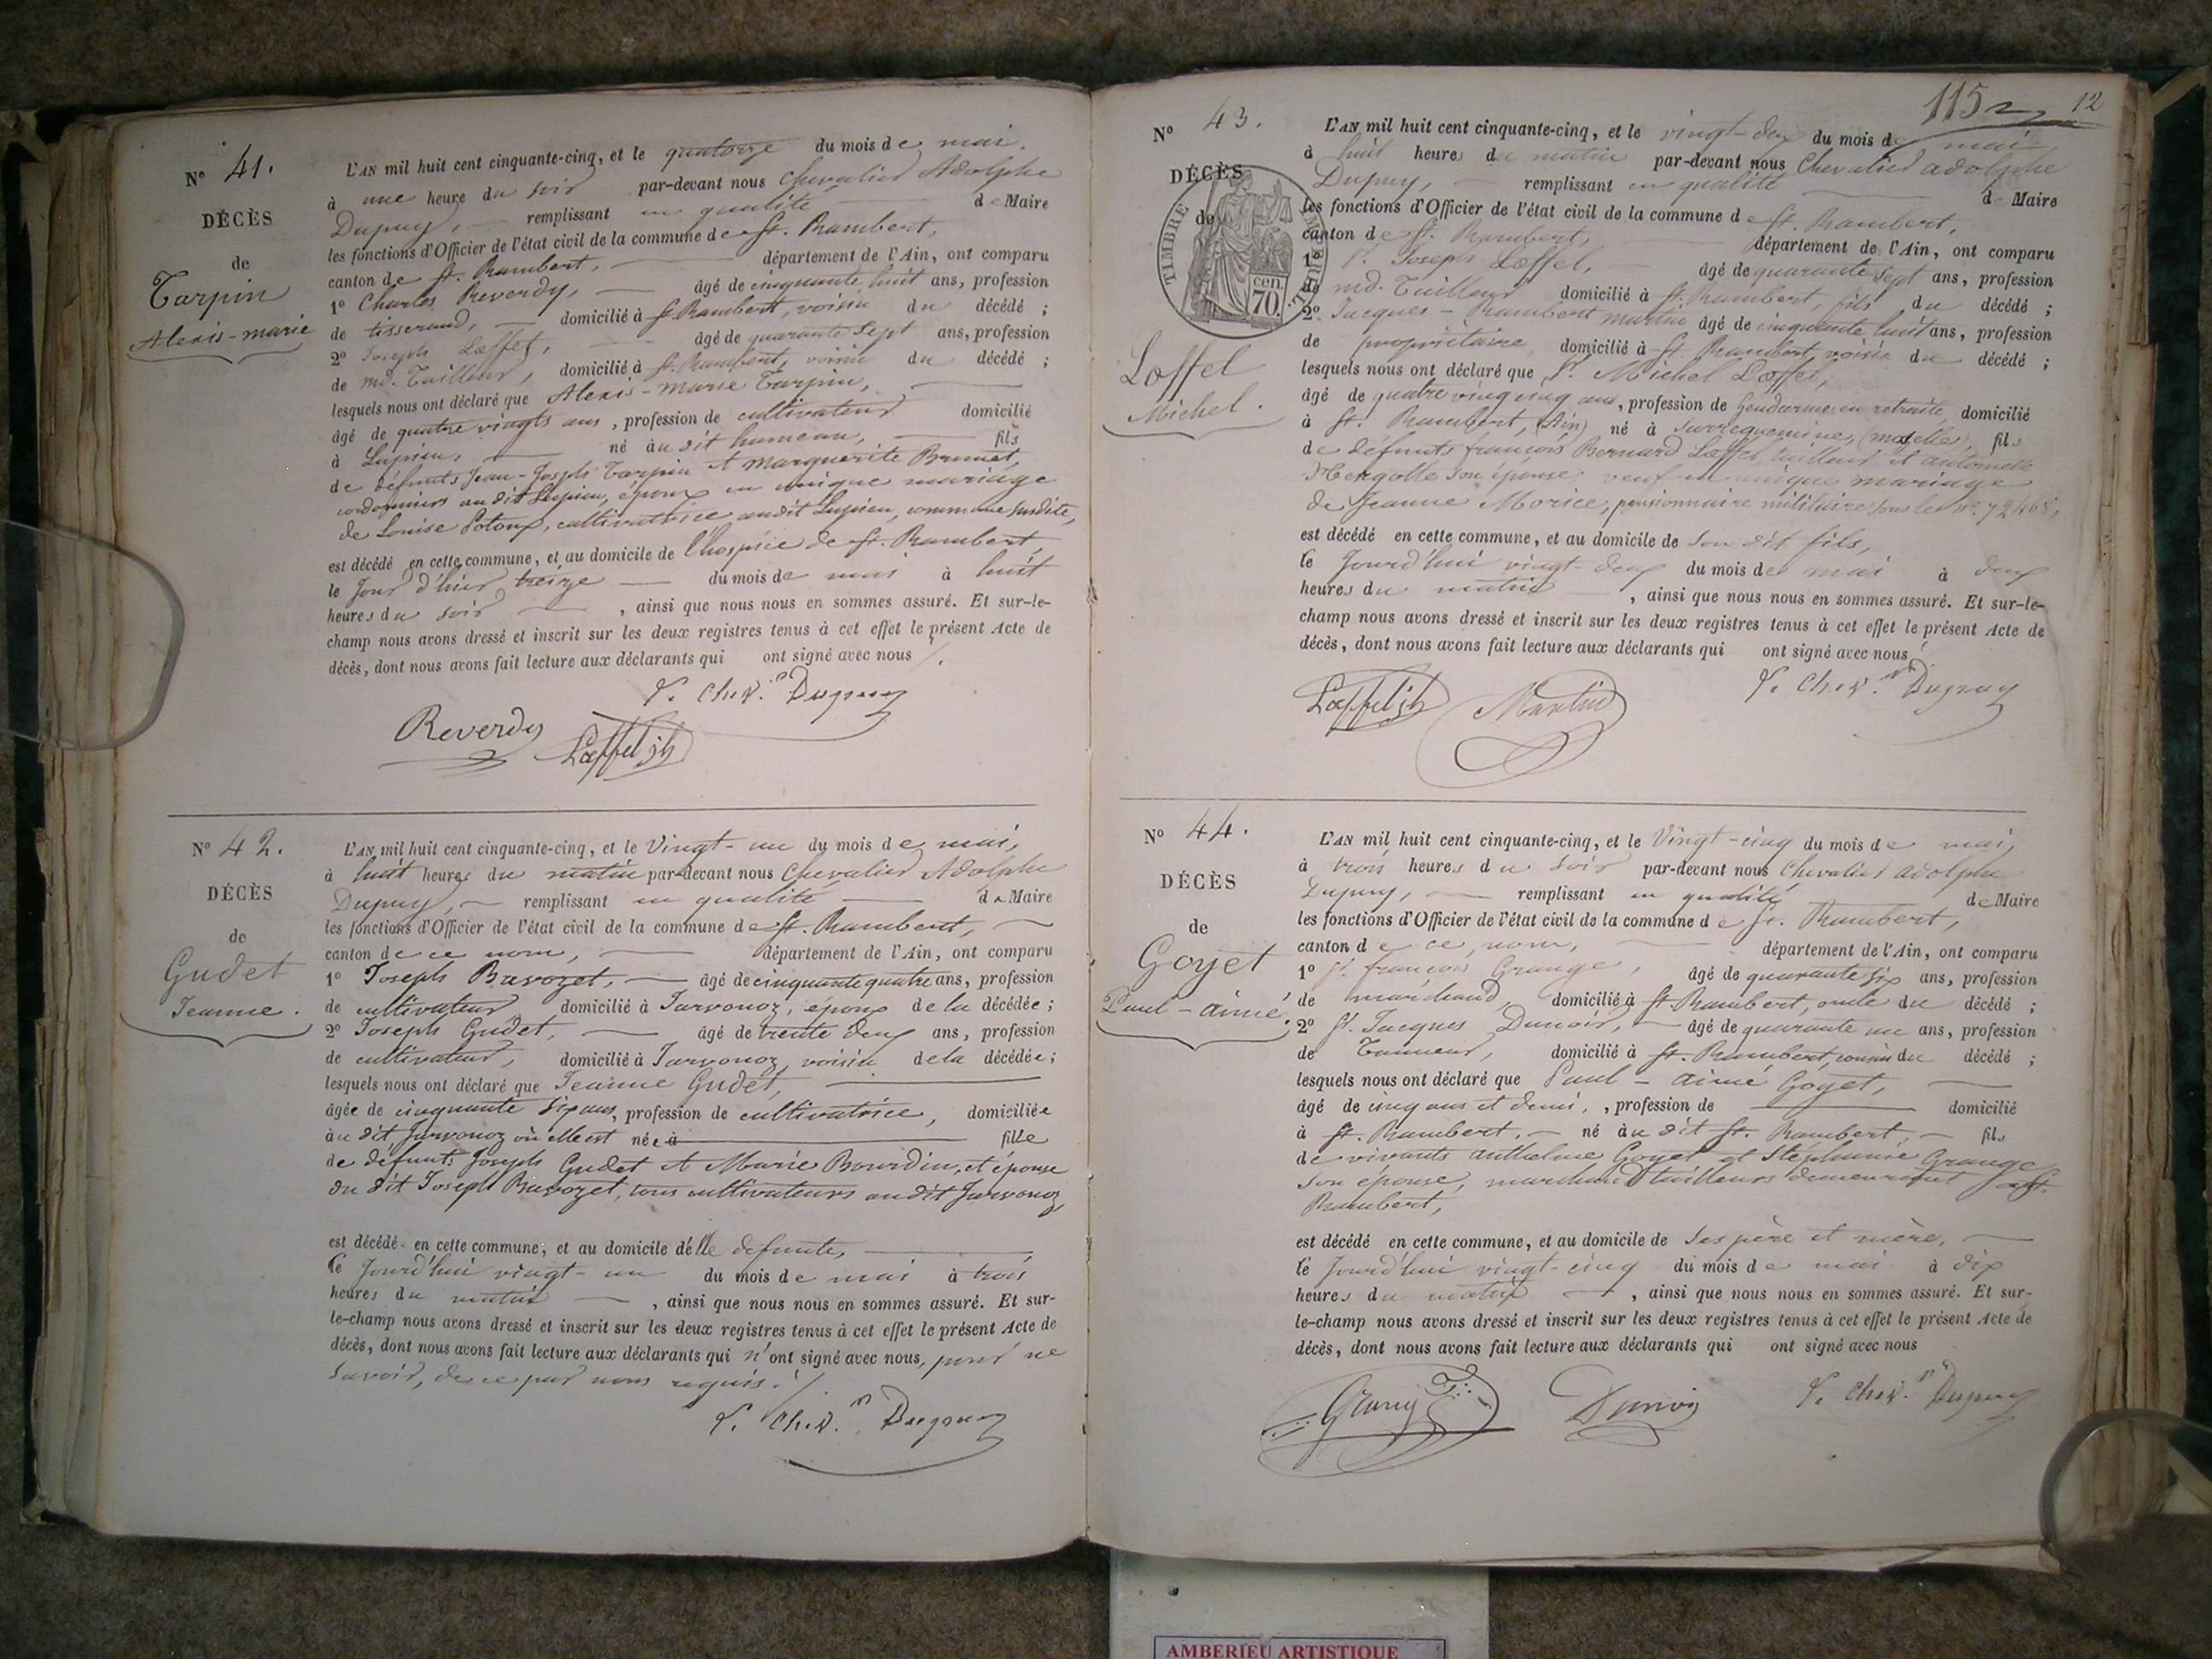 Nº 41.
DÉCÈS
de
Tarpin
Alexis-marie
L'AN mil huit cent cinquante-cinq, et le quatorze du mois de mai,
à une heure du soir par-devant nous Chevalier Adolphe
Dupuy, remplissant en qualité de Maire
les fonctions d'Officier de l'état civil de la commune de St. Rambert,
canton de St. Rambert, département de l'Ain, ont comparu
1º Charles Reverdy, âgé de cinquante huit ans, profession
de tisserand, domicilié à St Rambert, voisin du décédé ;
2º Joseph Lœffel, âgé de quarante sept ans, profession
de md. Tailleur, domicilié à St. Rambert, voisin du décédé ;
lesquels nous ont déclaré que Alexis-marie Tarpin,
âgé de quatre vingts ans, profession de cultivateur domicilié
à Lupieu, né au dit hameau, fils
de défunts Jean-Joseph Tarpin et Marguerite Brunet,
cordonniers au dit Lupieu, époux en unique mariage
de Louise Potoux, cultivatrice audit Lupieu, commune susdite,
est décédé en cette commune, et au domicile de l'hospice de St. Rambert
le jour d'hier treize du mois de mai à huit
heures du soir, ainsi que nous nous en sommes assuré. Et sur-le-
champ nous avons dressé et inscrit sur les deux registres tenus à cet effet le présent Acte de
décès, dont nous avons fait lecture aux déclarants qui ont signé avec nous
Chev. Dupuy
Reverdy Lœffel jh
Nº 42.
DÉCÈS
de
Gudet
Jeanne.
L'AN mil huit cent cinquante-cinq, et le Vingt-un du mois de mai,
à huit heures du matin par-devant nous Chevalier Adolphe
Dupuy, remplissant en qualité de Maire
les fonctions d'Officier de l'état civil de la commune de St. Rambert,
canton de ce nom, département de l'Ain, ont comparu
1º Joseph Bavozet, âgé de cinquante quatre ans, profession
de cultivateur domicilié à Javonoz, époux de la décédée ;
2º Joseph Gudet, âgé de trente deux ans, profession
de cultivateur, domicilié à Javonoz, voisin de la décédée ;
lesquels nous ont déclaré que Jeanne Gudet,
âgée de cinquante six ans, profession de cultivatrice, domiciliée
au dit Javonoz où elle est née à fille
de défunts Joseph Gudet et Marie Bourdin, et épouse
du dit Joseph Bavozet, tous cultivateurs audit Javonoz,
est décédé en cette commune, et au domicile d'elle defunte,
le Jourd'hui vingt-un du mois de mai à trois
heures du matin, ainsi que nous nous en sommes assuré. Et sur-
le-champ nous avons dressé et inscrit sur les deux registres tenus à cet effet le présent Acte de
décès, dont nous avons fait lecture aux déclarants qui n'ont signé avec nous, pour ne
savoir, de ce par nous requis.
Chev. Dupuy
115 12
Nº 43.
DÉCÈS
de
TIMBRE
cen.
70.
Lœffel
Michel.
L'AN mil huit cent cinquante-cinq, et le vingt-deux du mois de mai
à huit heures du matin par-devant nous Chevalier adolphe
Dupuy, remplissant en qualité de Maire
les fonctions d'Officier de l'état civil de la commune de St. Rambert,
canton de St. Rambert, département de l'Ain, ont comparu
1º Sr. Joseph Lœffel, âgé de quarante sept ans, profession
de md. Tailleur domicilié à St. Rambert, fils du décédé ;
2º Jacques-Rambert martin âgé de cinquante huit ans, profession
de propriétaire domicilié à St. Rambert, voisin du décédé ;
lesquels nous ont déclaré que Sr. Michel Lœffel,
âgé de quatre vingt cinq ans, profession de Gendarme en retraite, domicilié
à St. Rambert, (Ain) né à Sarreguemine, (moselle), fils
de défunts françois Bernard Lœffel, tailleur et antoinette
son épouse, veuf en unique mariage
de Jeanne Morice, pensionnaire militaire sous le nº. 72468,
est décédé en cette commune, et au domicile de son dit fils,
le Jourd'hui vingt-deux du mois de mai à deux
heures du matin, ainsi que nous nous en sommes assuré. Et sur-le-
champ nous avons dressé et inscrit sur les deux registres tenus à cet effet le présent Acte de
décès, dont nous avons fait lecture aux déclarants qui ont signé avec nous
Lœffel jh Martin Chev. Dupuy
Nº 44.
DÉCÈS
de
Goyet
Paul-aimé
L'AN mil huit cent cinquante-cinq, et le Vingt-cinq du mois de mai,
à trois heures du soir par-devant nous Chevalier adolphe
Dupuy, remplissant en qualité de Maire
les fonctions d'Officier de l'état civil de la commune de St. Rambert,
canton de ce nom, département de l'Ain, ont comparu
1º Sr. françois Grange, âgé de quarante six ans, profession
de marchand, domicilié à St. Rambert, oncle du décédé ;
2º Sr. Jacques Dunoir, âgé de quarante un ans, profession
de Tanneur, domicilié à St. Rambert, cousin du décédé ;
lesquels nous ont déclaré que Paul-aimé Goyet,
âgé de cinq ans et demi, profession de domicilié
à St. Rambert, né au dit St. Rambert, fils
de vivants anthelme Goyet et Stéphanie Grange
son épouse, marchand tailleurs demeurant à St.
Rambert,
est décédé en cette commune, et au domicile de ses père et mère,
le Jourd'hui vingt-cinq du mois de mai à dix
heures du matin, ainsi que nous nous en sommes assuré. Et sur-
le-champ nous avons dressé et inscrit sur les deux registres tenus à cet effet le présent Acte de
décès, dont nous avons fait lecture aux déclarants qui ont signé avec nous
Grange Dunoir Chev. Dupuy
AMBERIEU ARTISTIQUE